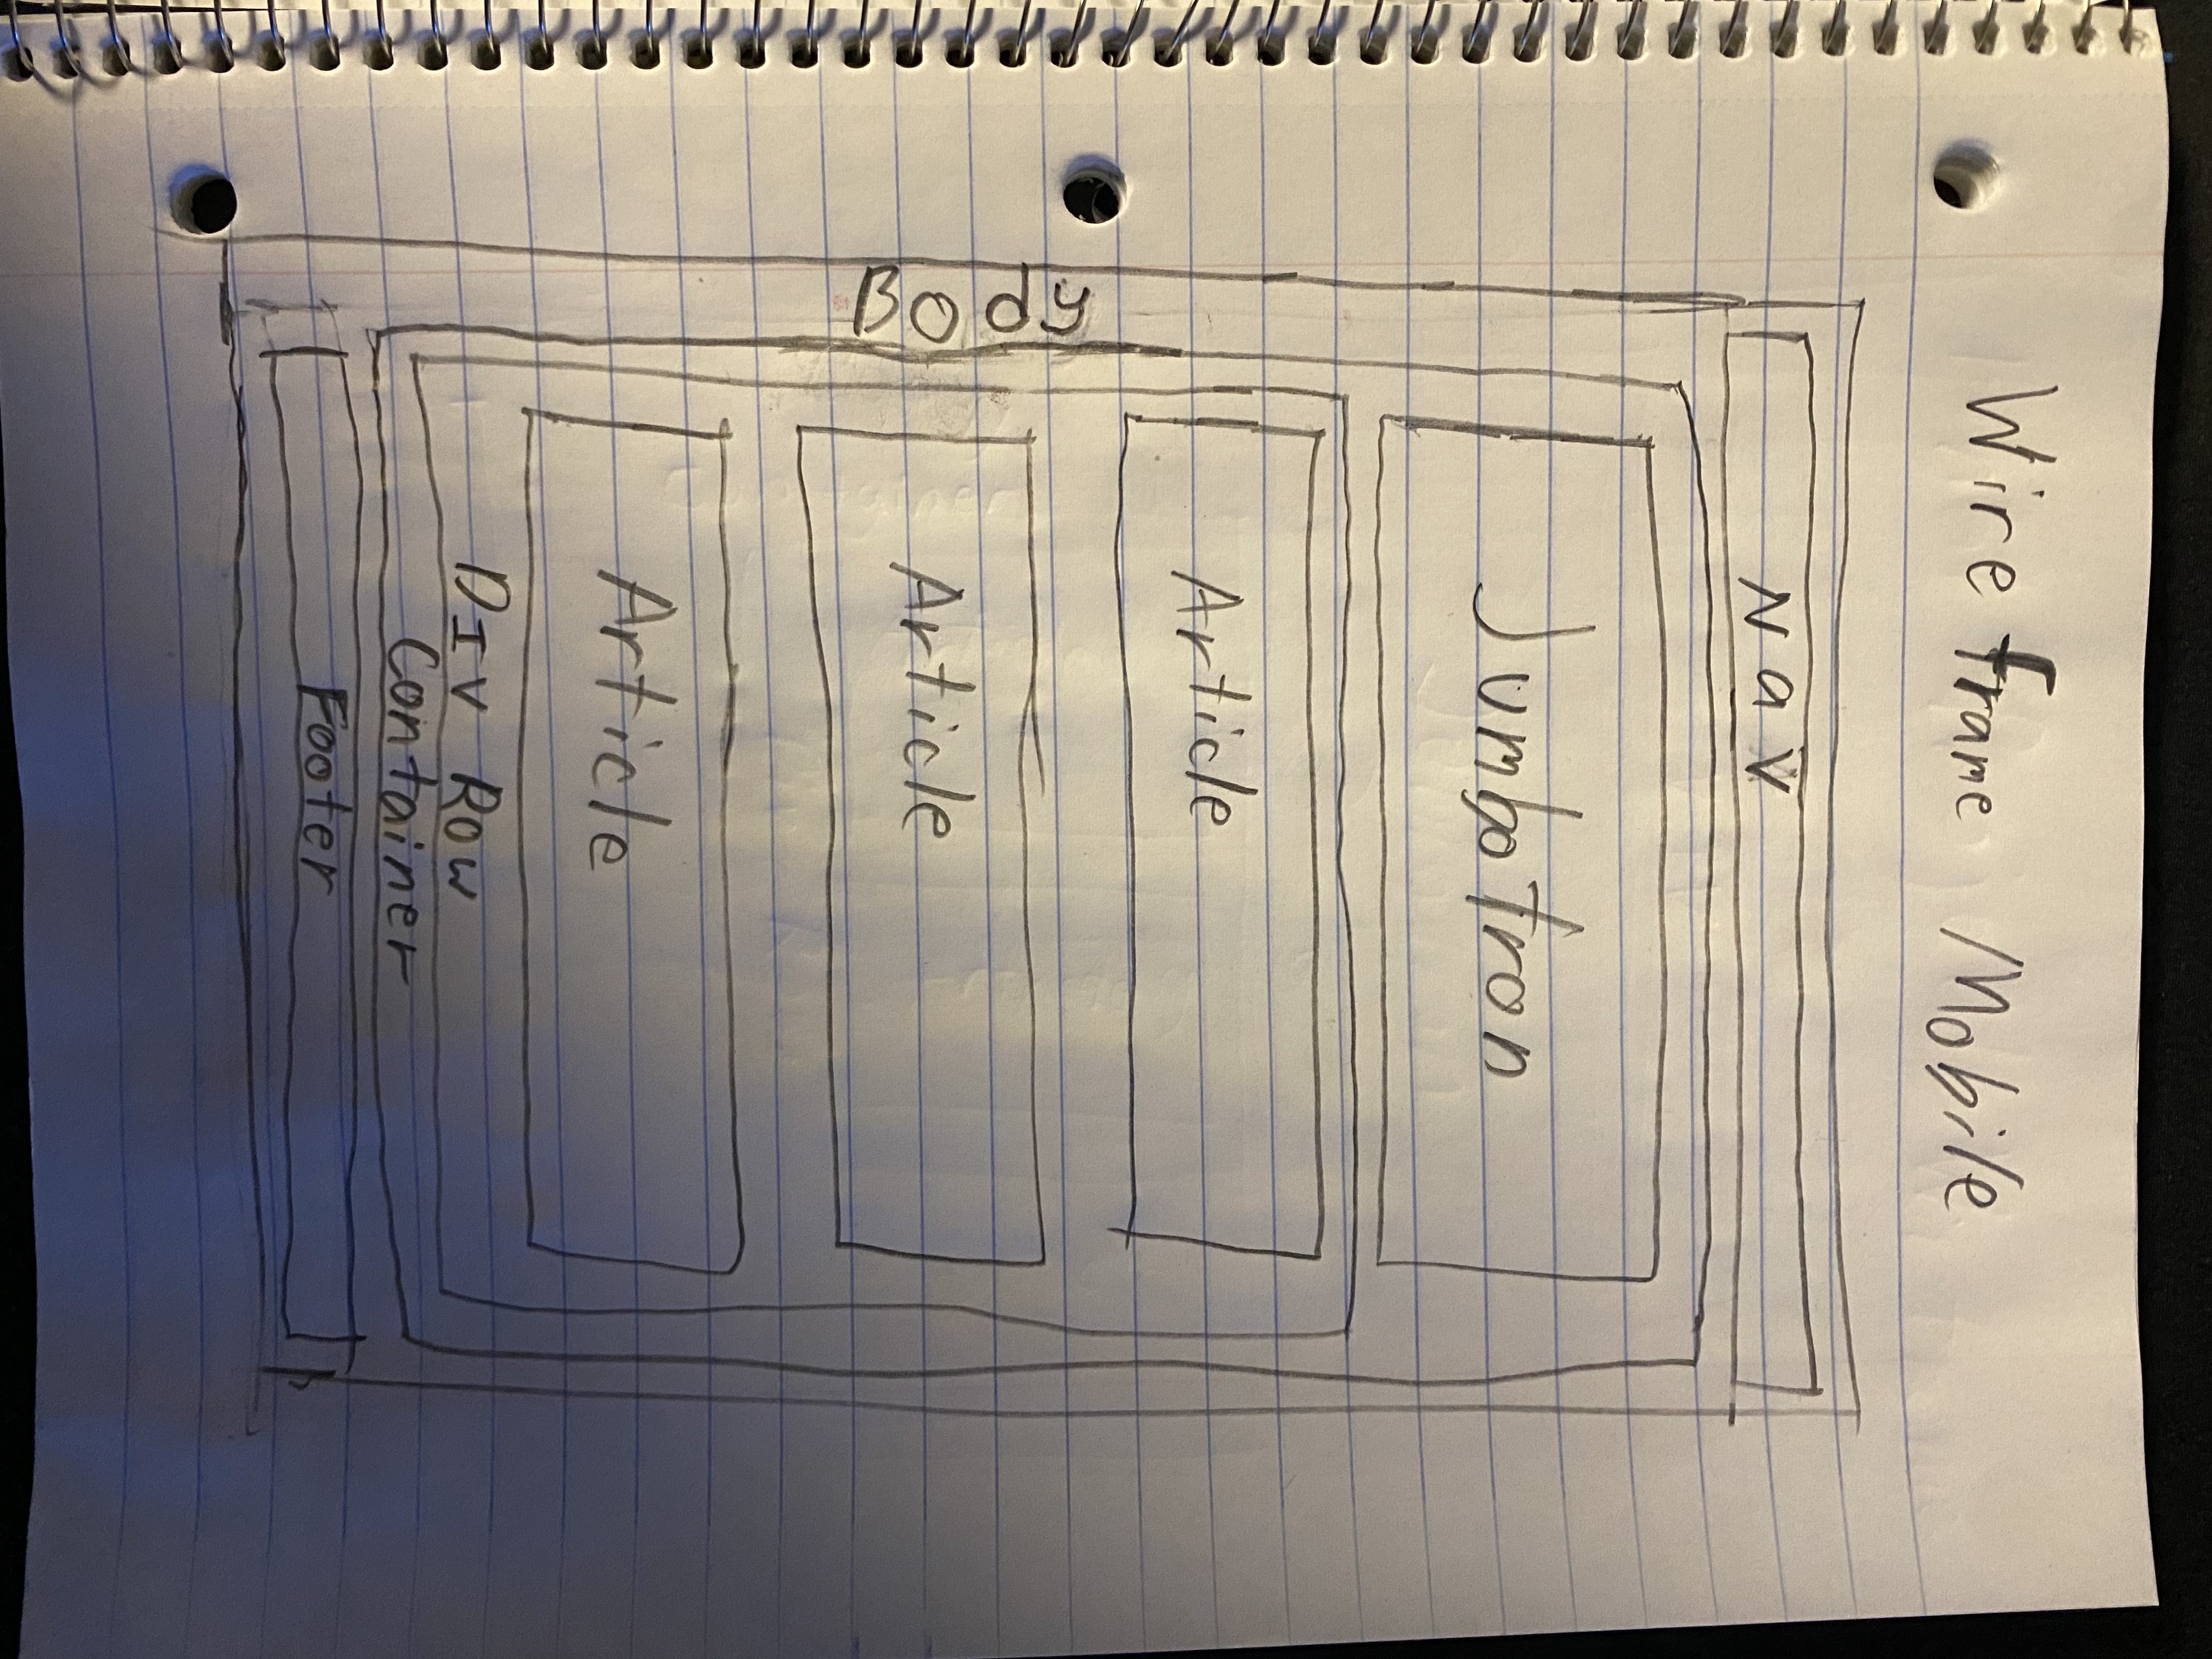 Wireframe Mobile
Nav
Jumbotron
Article
Article
Body
Article
DIV Row
Container
Footer